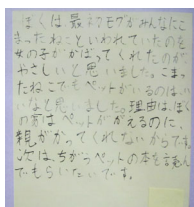 ぼくは最  モグがみんなに
こまったねこといわれていたのを
女の子がかばってくれたのが
やさしいと思いました。こま
たねこでもペットがいるのは、い
いなと思いました。理由は、ぼ
の家はペットがかえるのに、
親がかってくれないからです。
次は、ちがうペットの本を読ん
でもらいたいです。